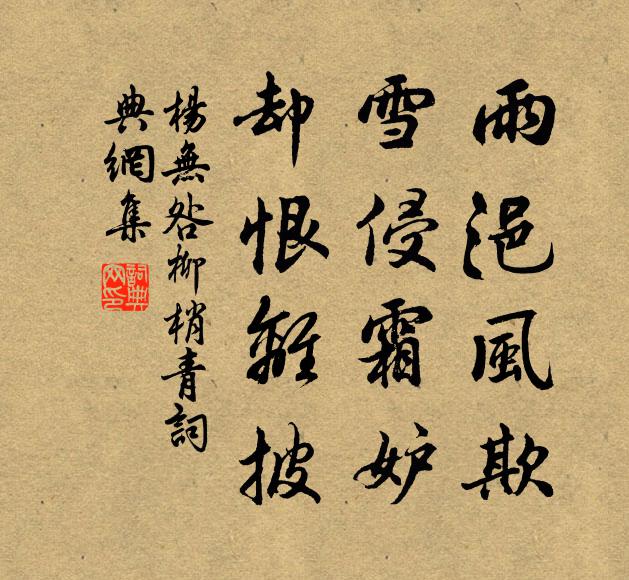 雨浥風欺
雪侵霜妒
却恨離披
楊無咎柳梢青詞
典網集
詞典網印